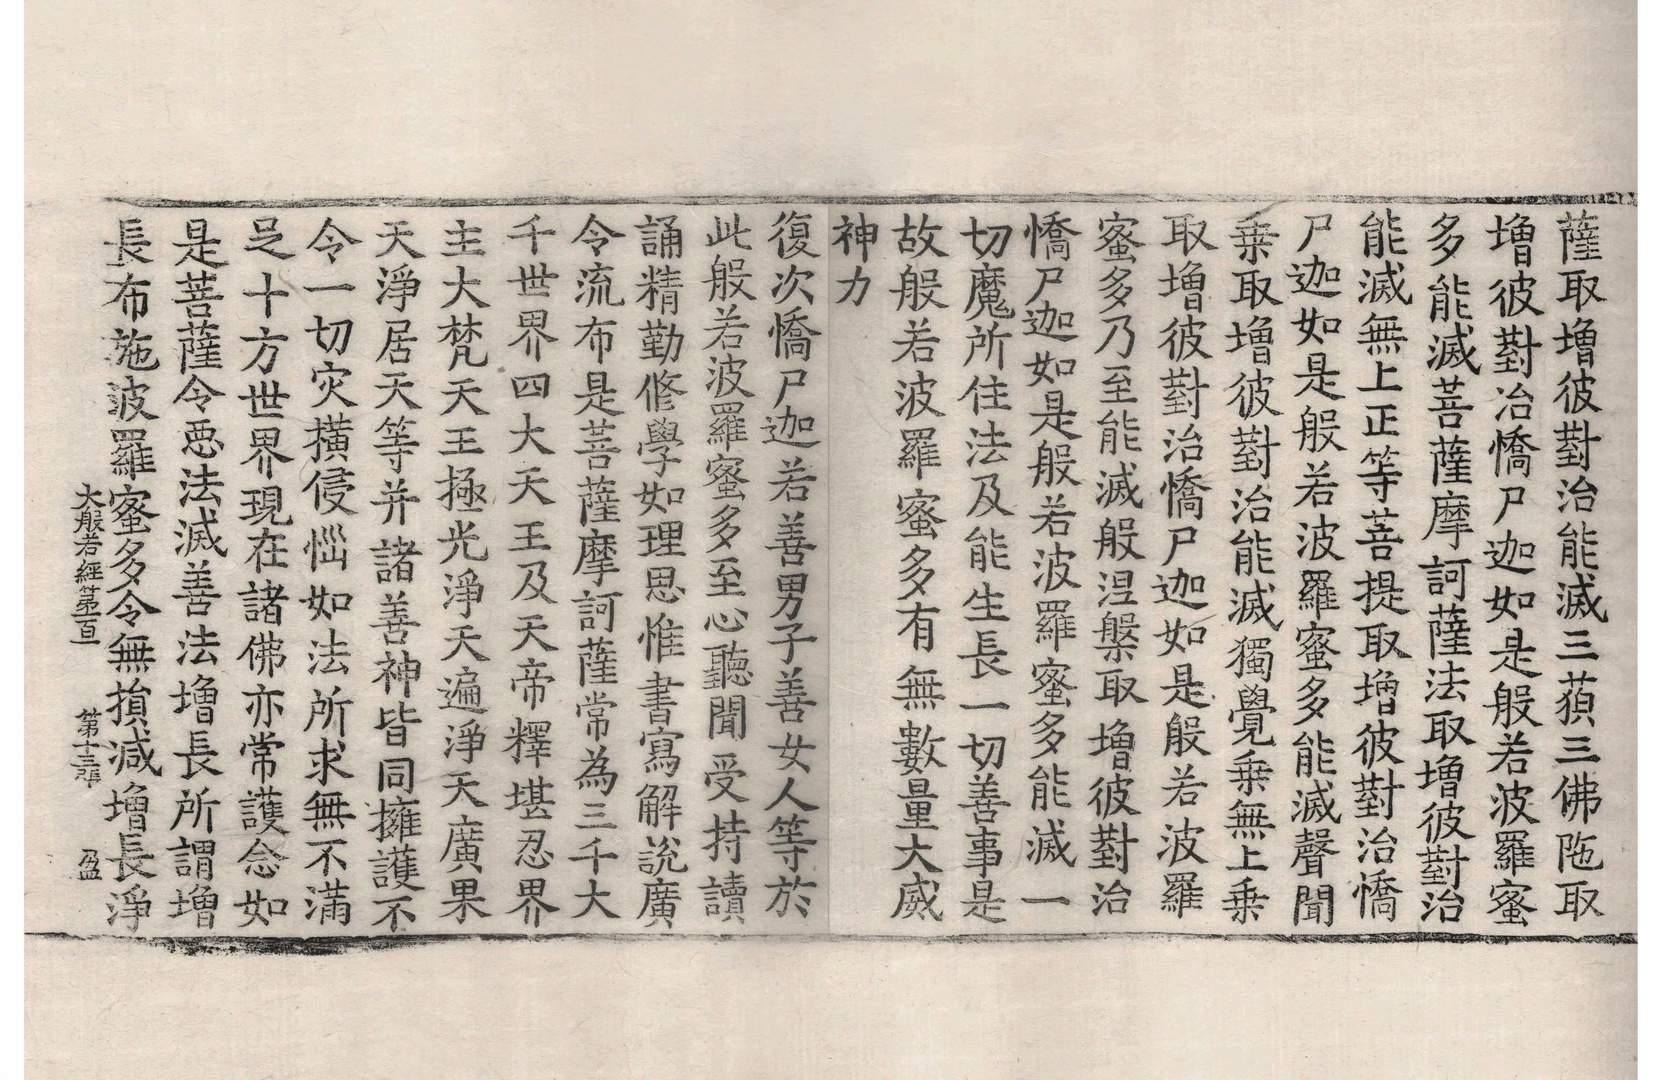 薩取增彼對治能滅三藐三佛陁取
增彼對治憍尸迦如是般若波羅蜜
多能滅菩薩摩訶薩法取增彼對治
能滅無上正等菩提取增彼對治憍
尸迦如是般若波羅蜜多能滅聲聞
乗取增彼對治能滅獨覺乗無上乗
取增彼對治憍尸迦如是般若波羅
蜜多乃至能滅般涅槃取增彼對治
憍尸迦如是般若波羅蜜多能滅一
切魔所住法及能生長一切善事是
故般若波羅蜜多有無數量大威
神力
復次憍尸迦若善男子善女人等於
此般若波羅蜜多至心聽聞受持讀
誦精勤修學如理思惟書寫解說廣
令流布是菩薩摩訶薩常為三千大
千世界四大天王及天帝釋堪忍界
主大梵天王極光淨天遍淨天廣果
天淨居天等并諸善神皆同擁護不
令一切灾橫侵惱如法所求無不滿
足十方世界現在諸佛亦常護念如
是菩薩令惡法滅善法增長所謂增
長布施波羅蜜多令無損減增長淨
大般若經第一百 第十三張 盈